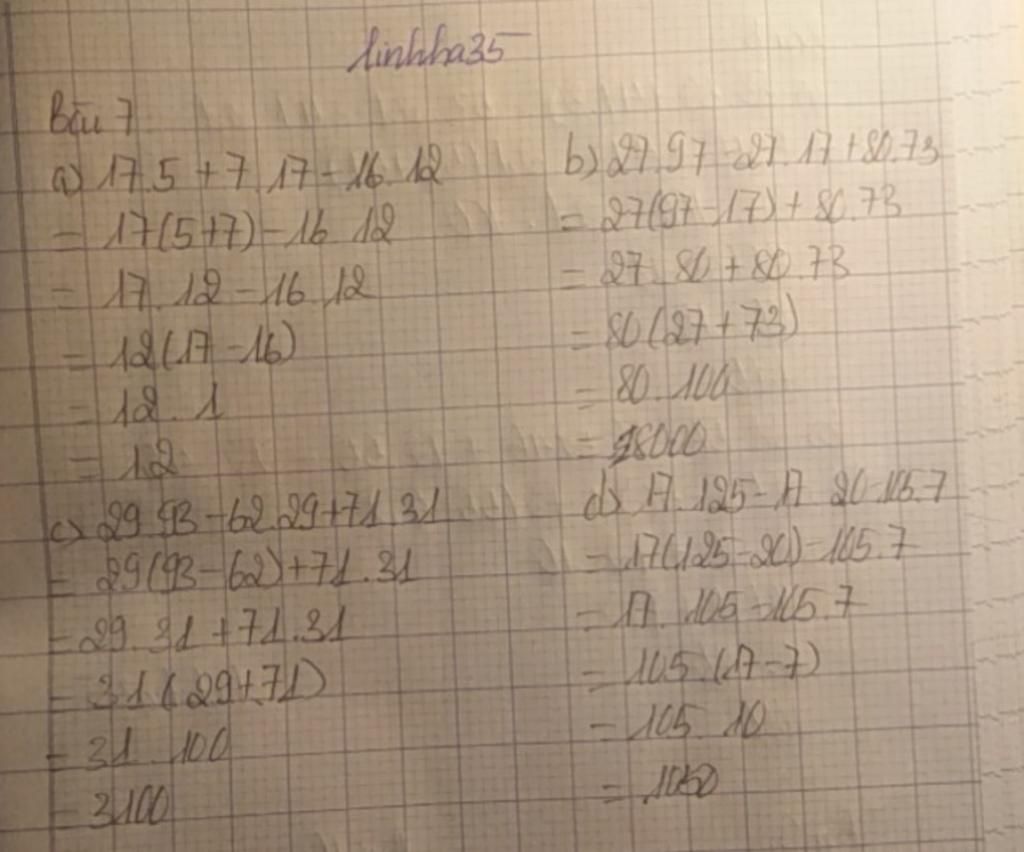 linhha35
Bài 7
a) 17.5 + 7.17 - 16.12
= 17(5+7) - 16.12
= 17.12 - 16.12
= 12(17-16)
= 12.1
= 12
b) 27.97 - 27.17 + 80.73
= 27(97-17) + 80.73
= 27.80 + 80.73
= 80(27+73)
= 80.100
= 8000
c) 29.93 - 62.29 + 71.31
= 29(93-62) + 71.31
= 29.31 + 71.31
= 31(29+71)
= 31.100
= 3100
d) 17.125 - 17.20 - 105.7
= 17(125-20) - 105.7
= 17.105 - 105.7
= 105.(17-7)
= 105.10
= 1050